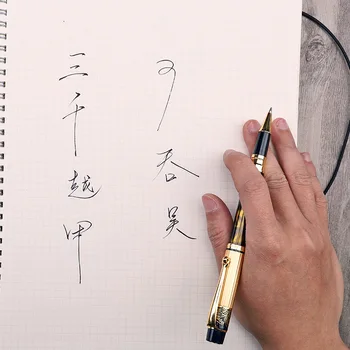 三千越甲
可吞吴